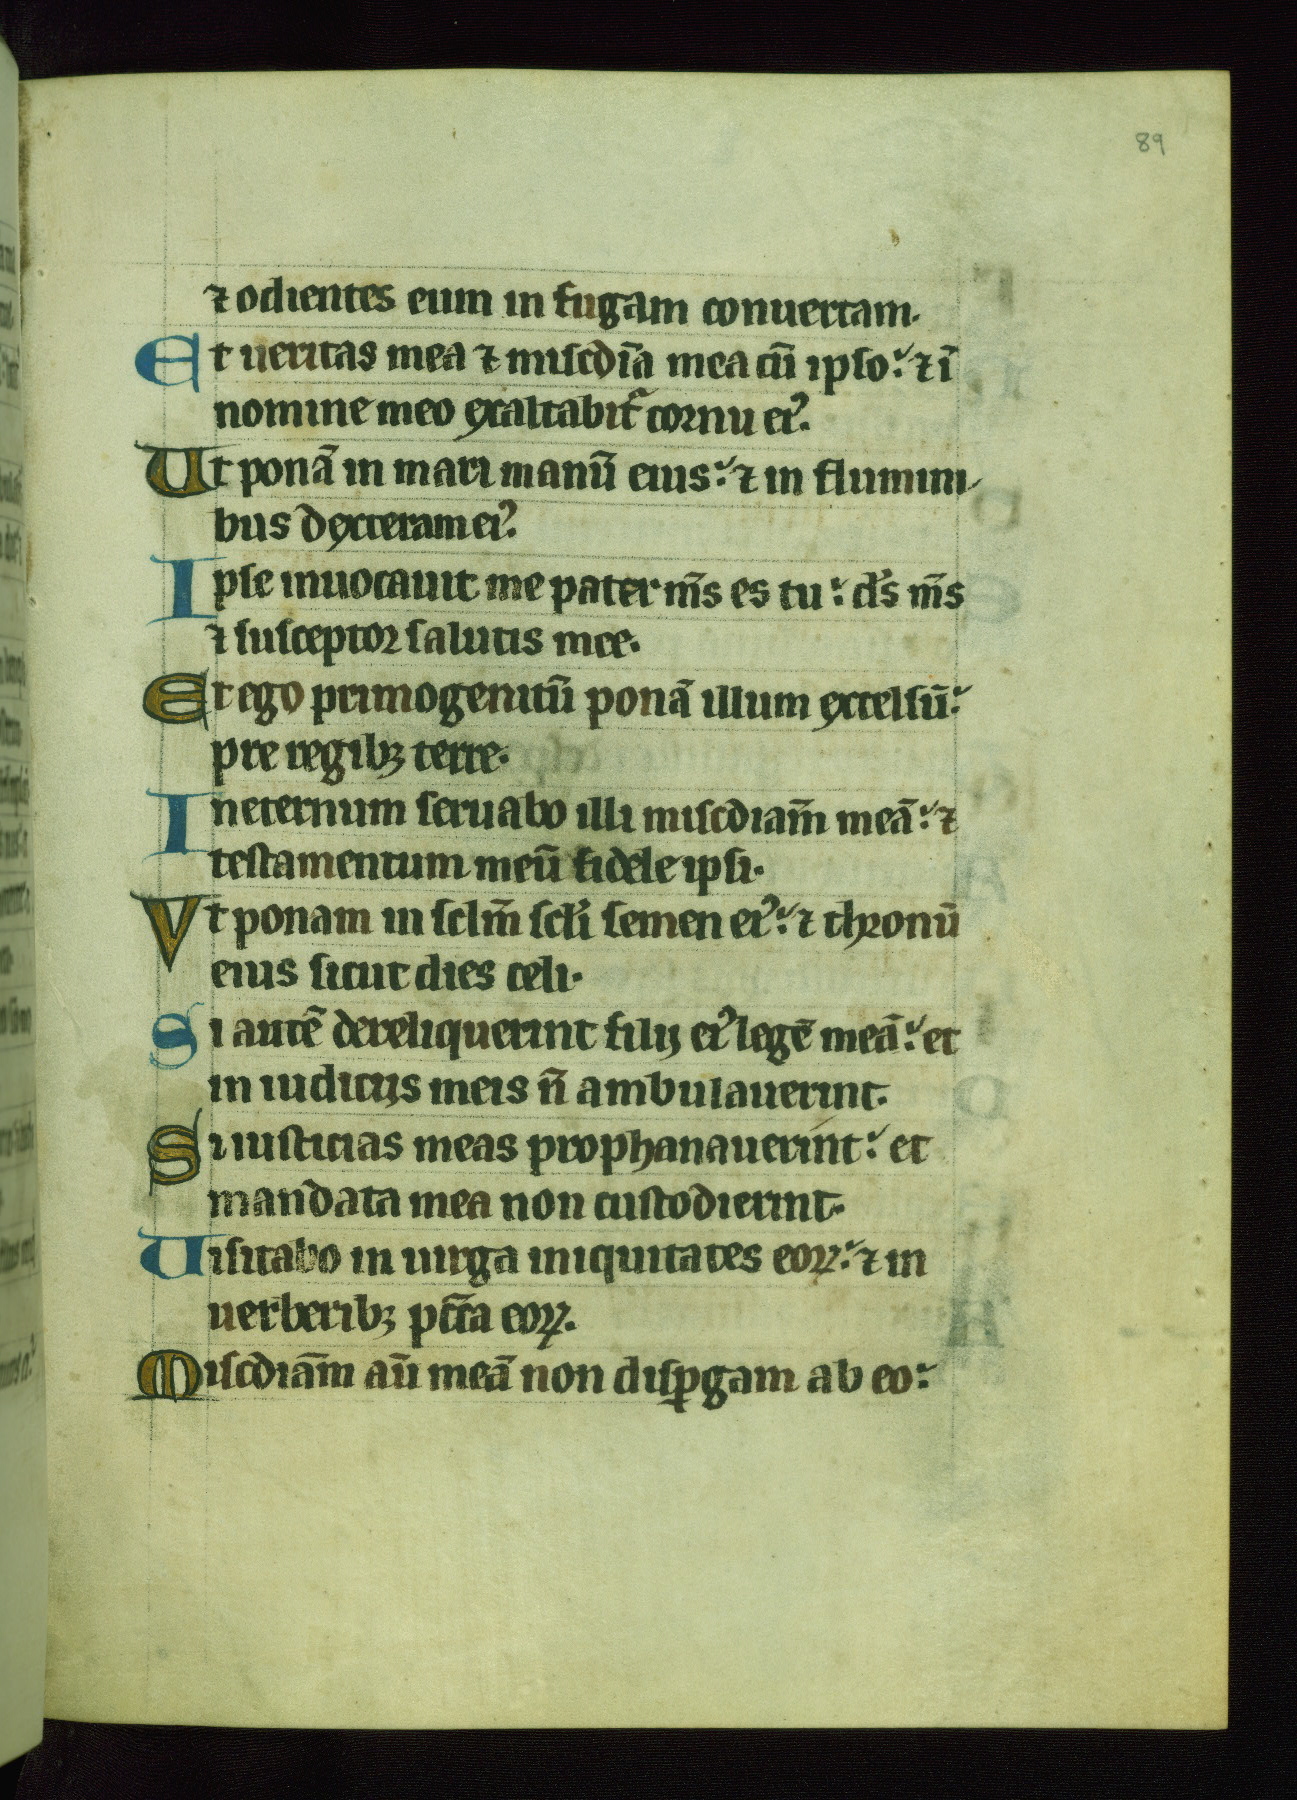 89
⁊ odientes eum in fugam conuertam.
Et ueritas mea ⁊ miſcd̄ia mea cū ipſo: ⁊ ī
nomine meo exaltabit᷑ cornu ei᾿.
Ut ponā in mari manū eius: ⁊ in flumini-
bus dexteram ei᾿.
Ipſe inuocauit me pater m̄s es tu: ds̄ m̄s
⁊ ſuſceptor ſalutis mee.
Et ego primogenitū ponā illum excelſū:
pre regibꝫ terre.
In eternum ſeruabo illi miſcdiam̄ meā: ⁊
teſtamentum meū fidele ipſi.
Vt ponam in ſclm̄ ſcl̄i ſemen ei᾿: ⁊ thronū
eius ſicut dies celi.
Si autē dereliquerint filij ei᾿ legē meā: et
in iudicijs meis n̄ ambulauerint.
Si iuſticias meas prophanauerint: et
mandata mea non cuſtodierint.
Uiſitabo in uirga iniquitates eoꝝ: ⁊ in
uerberibꝫ pc̄ta eoꝝ.
Miſcdiām aū meā non diſꝑgam ab eo: